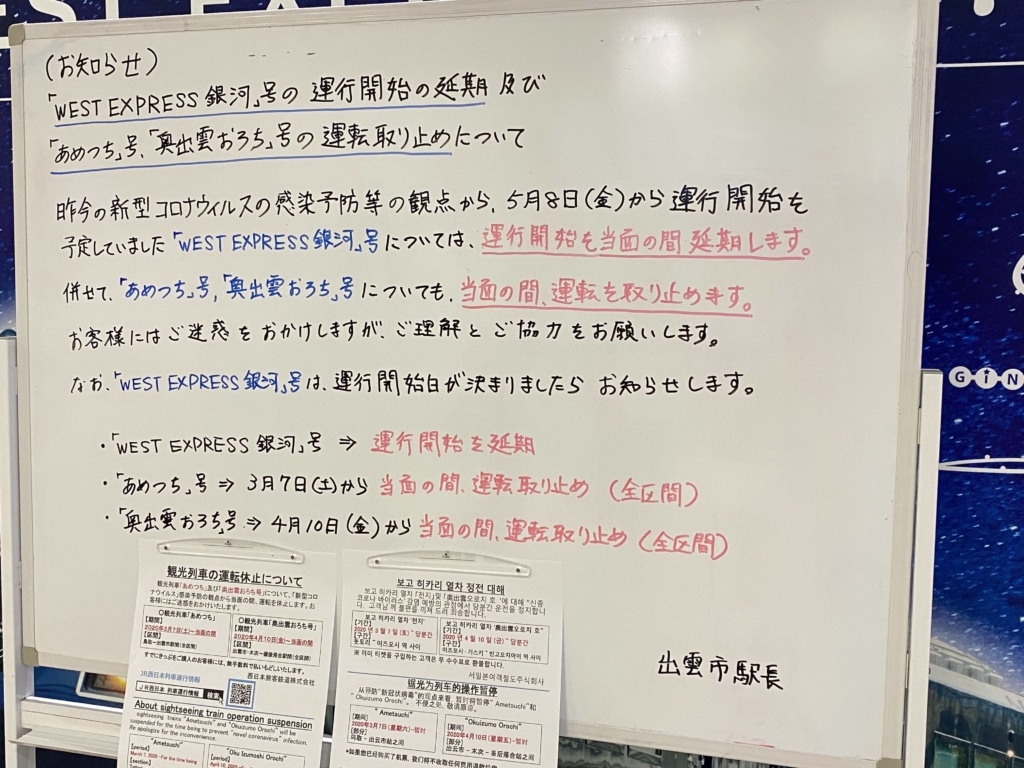 (お知らせ)
「WEST EXPRESS 銀河」号の 運行開始の延期 及び
「あめつち」号、「奥出雲おろち」号の 運転取り止めについて
昨今の新型コロナウィルスの感染予防等の観点から、5月8日(金)から運行開始を
予定していました「WEST EXPRESS 銀河」号については、運行開始を当面の間 延期します。
併せて、「あめつち」号,「奥出雲おろち」号についても、当面の間、運転を取り止めます。
お客様にはご迷惑をおかけしますが、ご理解とご協力をお願いします。
なお、「WEST EXPRESS 銀河」号は、運行開始日が決まりましたら お知らせします。
・「WEST EXPRESS 銀河」号 ⇒ 運行開始を延期
・「あめつち」号 ⇒ 3月7日(土)から 当面の間、運転取り止め (全区間)
・「奥出雲おろち号 ⇒ 4月10日(金)から 当面の間、運転取り止め (全区間)
出雲市駅長
観光列車の運転休止について
観光列車「あめつち」及び「奥出雲おろち号」について、「新型コロ
ナウイルス」感染予防の観点から当面の間、運転を休止します。お
客様にはご迷惑をおかけいたします。
〇観光列車「あめつち」
【期間】
2020年3月7日(土)~当面の間
【区間】
鳥取~出雲市駅間(全区間)
〇観光列車「奥出雲おろち号」
【期間】
2020年4月10日(金)~当面の間
【区間】
出雲市・木次~備後落合駅間(全区間)
すでにきっぷをご購入のお客様には、無手数料で払いもどしいたします。
西日本旅客鉄道株式会社
JR西日本列車運行情報
JR西日本 列車運行情報 検索
About sightseeing train operation suspension
sightseeing trains "Ametsuchi" and "Okuizumo Orochi" will be
suspended for the time being to prevent "novel coronavirus" infection.
We apologize for the inconvenience.
"Ametsuchi"
【period】
March 7, 2020 -For the time being
"Oku Izumoni Orochi"
【period】
보고 히카리 열차 정전 대해
보고 히카리 열차 「천지」및「奥出雲오로지 호 '에 대해 "신종
코로나 바이러스" 감염 예방의 관점에서 당분간 운전을 정지합니
다. 고객님 께 불편을 끼쳐 드려 죄송합니다.
보고 히카리 열차 '천지'
【기간】
2020 년 3 월 7 일 (토) ~ 당분간
【구간】
돗토리 ~ 이즈모시 역 사이
보고 히카리 열차 '奥出雲오로지 호'
【기간】
2020 년 4 월 10 일 (금) ~ 당분간
【구간】
이즈모시 · 기스키 ~ 빈고오치아이 역 사이
※ 이미 티켓을 구입하는 고객은 무 수수료로 환불합니다.
서일본여객철도주식회사
琨光为列车的操作暂停
从预防"新冠状病毒"的观点来看 暂时将暂停" Ametsuchi"和
"Okuizumo Orochi"。 不便之处，敬请原谅。
"Ametsuchi"
【期间】
2020年3月7日(星期六)~暂时
【部分】
鸟取 - 出云市站之间
"Okuizumo Orochi"
【期间】
2020年4月10日(星期五)~暂时
【部分】
出云市 · 木次 - 备后落合站之间
*如果您已经购买了机票，我们将不收取任何费用退款